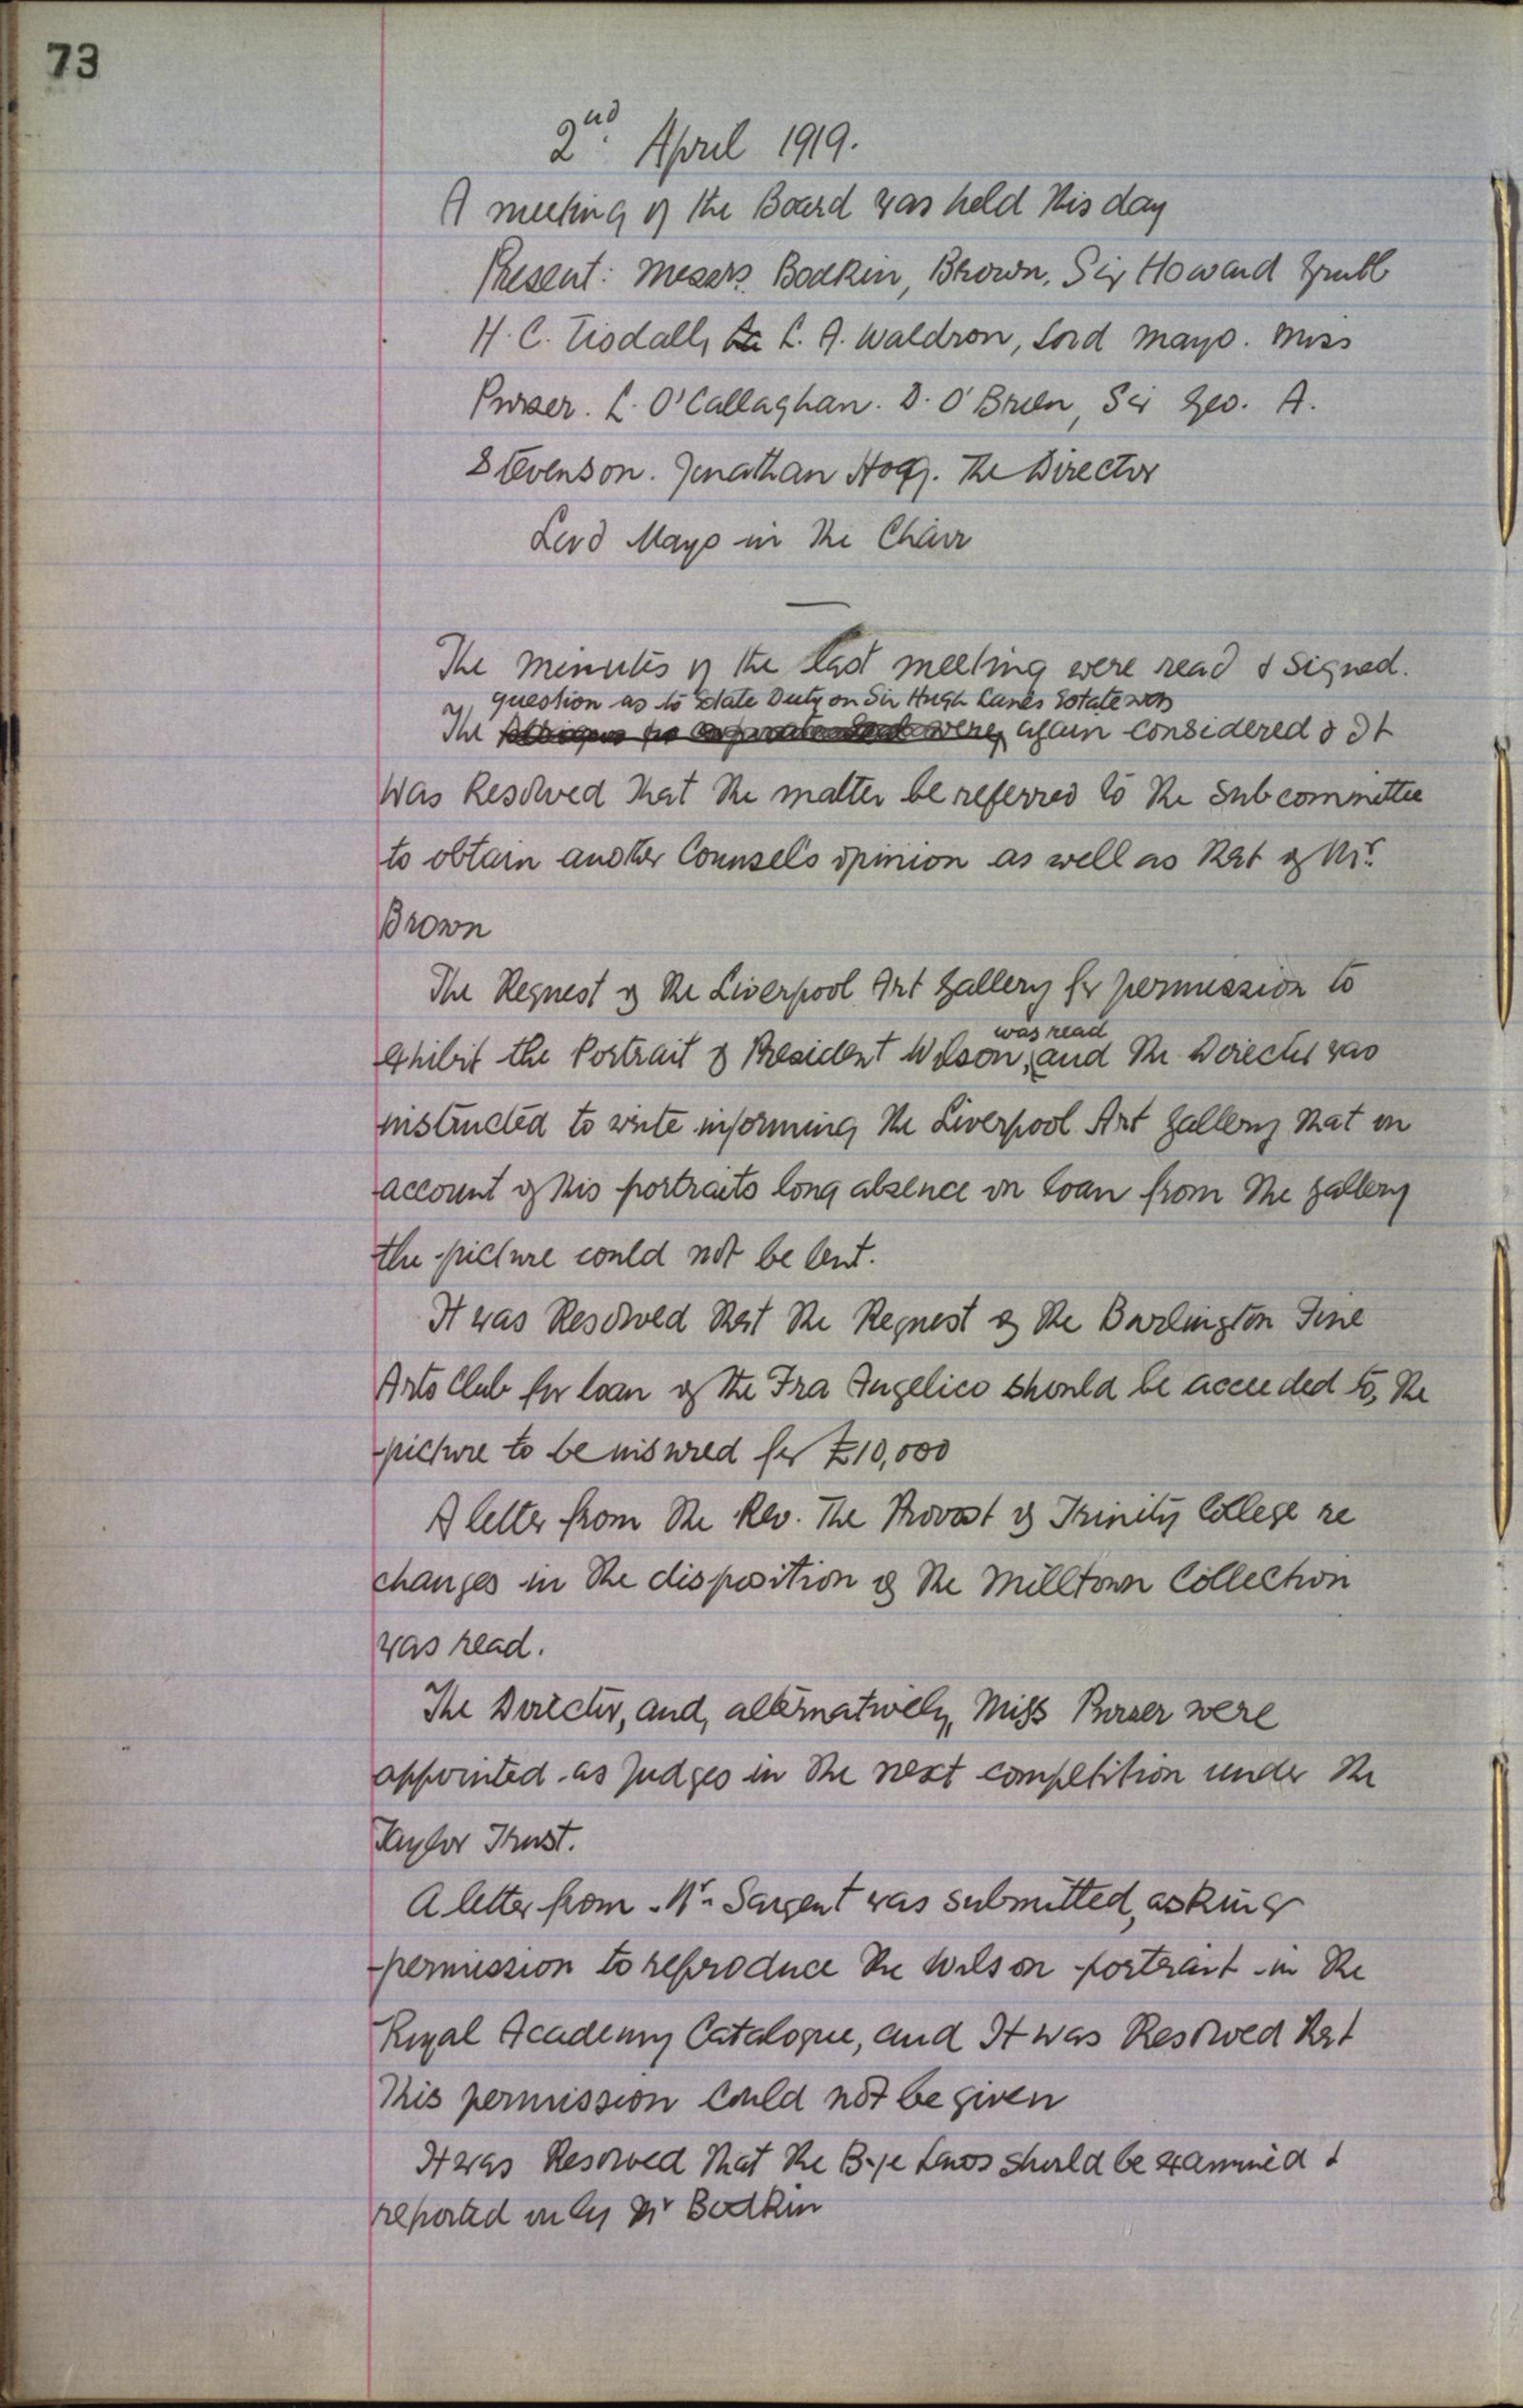 73
2nd. April 1919.
A meeting of the Board was held this day
Present: Messrs. Bodkin, Brown, Sir Howard Grubb
H. C. Tisdall, L. A. Waldron, Lord Mayo. Miss
Purser. L. O'Callaghan. D. O'Brien, Sir Geo. A.
Stevenson. Jonathan Hogg. The Director
Lord Mayo in the Chair
The minutes of the last meeting were read & signed.
question as to Estate Duty on Sir Hugh Lane's Estate was
The again considered & It
was Resolved that the matter be referred to the Subcommittee
to obtain another Counsel's opinion as well as that of Mr.
Brown
The Request of the Liverpool Art Gallery for permission to
was read
exhibit the Portrait of President Wilson, and the Director was
instructed to write informing the Liverpool Art Gallery that on
account of this portraits long absence on loan from the gallery
the picture could not be lent.
It was Resolved that the Request of the Burlington Fine
Arts Club for loan of the Fra Angelico should be acceeded to, the
picture to be insured for £10,000
A letter from the Rev. The Provost of Trinity College re
changes in the disposition of the Milltown Collection
was read.
The Director, and, alternatively, Miss Purser were
appointed as Judges in the next competition under the
Taylor Trust.
A letter from Mr. Sargent was submitted, asking
permission to reproduce the Wilson portrait in the
Royal Academy Catalogue, and It was Resolved that
this permission could not be given
It was Resolved that the Bye Laws should be examined &
reported on by Mr Bodkin